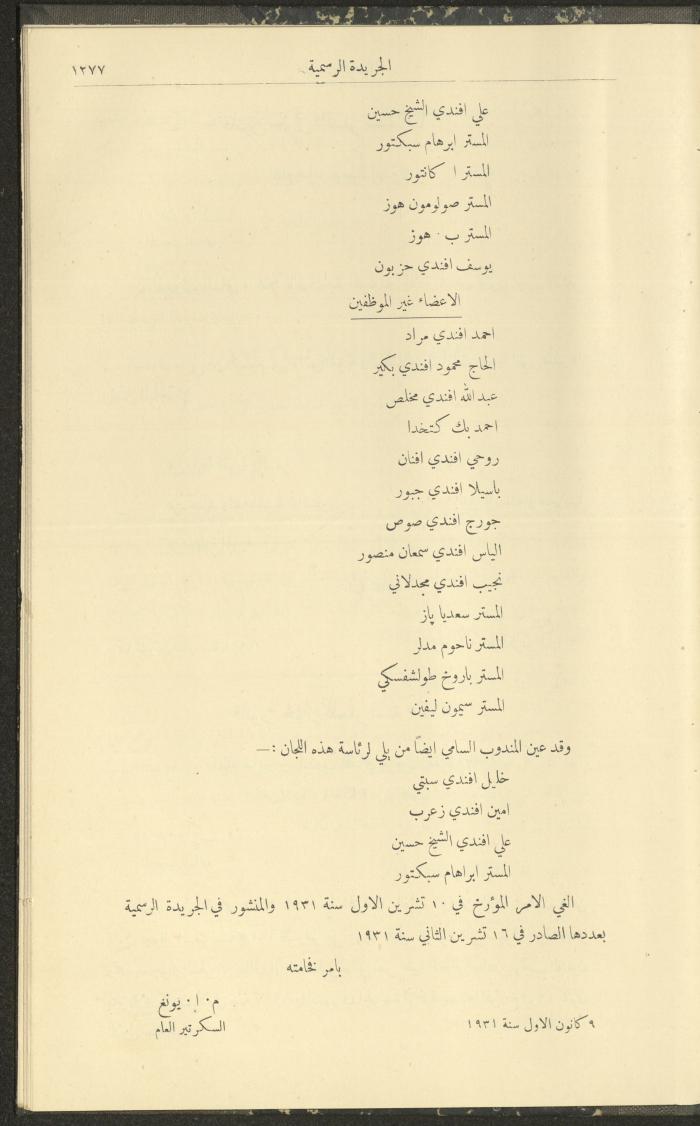 الجريدة الرسمية
١٢٧٧
علي افندي الشيخ حسين
المستر ابرهام سبكتور
المستر ا كانتور
المستر صولومون هوز
المستر ب ٠ هوز
يوسف افندي حزبون
الاعضاء غير الموظفين
احمد افندي مراد
الحاج محمود افندي بكير
عبد الله افندي مخلص
احمد بك كتخدا
روحي افندي افنان
باسيلا افندي جبور
جورج افندي صوص
الياس افندي سمعان منصور
نجيب افندي مجدلاني
المستر سعديا پاز
المستر ناحوم مدلر
المستر باروخ طولشفسكي
المستر سيمون ليفين
وقد عين المندوب السامي ايضاً من يلي لرئاسة هذه اللجان :—
خليل افندي سبتي
امين افندي زعرب
علي افندي الشيخ حسين
المستر ابراهام سبكتور
الغي الامر المؤرخ في ١٠ تشرين الاول سنة ١٩٣١ والمنشور في الجريدة الرسمية
بعددها الصادر في ١٦ تشرين الثاني سنة ١٩٣١
بامر فخامته
م٠ ا٠ يونغ
السكرتير العام
٩ كانون الاول سنة ١٩٣١